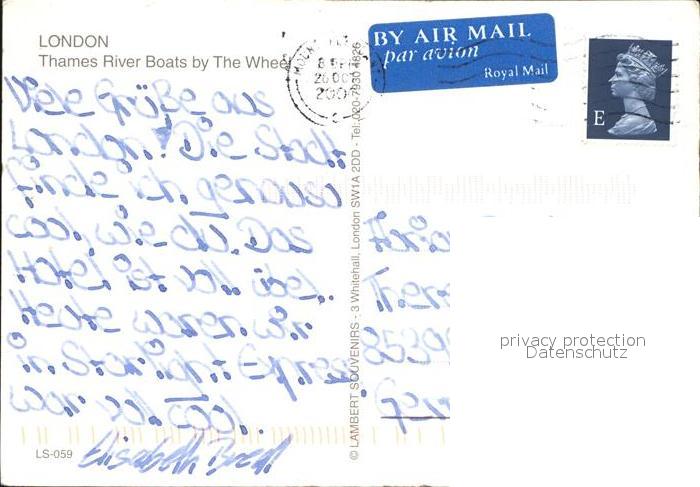 LONDON
Thames River Boats by The Whee
Viele Grüße aus
London! Die Stadt
finde ich genauso
cool, wie du. Das
Hotel ist voll übel.
Heute waren wir
in Starlight Express
war voll cool.
Elisabeth
LS-059
© LAMBERT SOUVENIRS - 3 Whitehall, London SW1A 2DD - Tel: 020-7930 4826
BY AIR MAIL
par avion
Royal Mail
26 OCT
E
Ther
Germ
privacy protection
Datenschutz